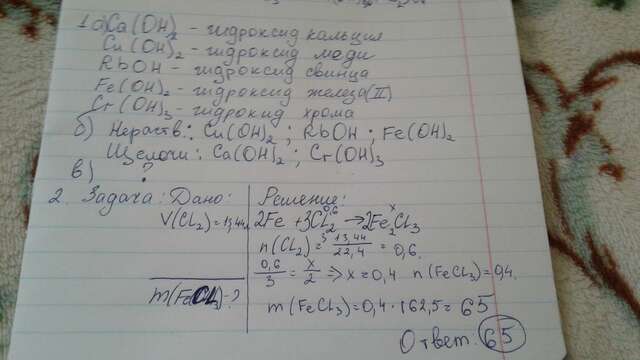 1. а) Ca(OH)2 - гидроксид кальция
Cu(OH)2 - гидроксид меди
RbOH - гидроксид свинца
Fe(OH)2 - гидроксид железа(II)
Cr(OH)3 - гидроксид хрома
б) Нераств: Cu(OH)2 ; RbOH ; Fe(OH)2
Щелочи: Ca(OH)2 ; Cr(OH)3
в) ?
2. Задача: Дано: Решение:
V(Cl2)=13,44
0,6 x
2Fe + 3Cl2 → 2Fe2Cl3
n(Cl2) = 13,44/22,4 = 0,6.
0,6/3 = x/2 ⇒ x = 0,4 n(FeCl3) = 0,4.
m(FeCl3)-?
m(FeCl3) = 0,4 · 162,5 = 65
Ответ: 65